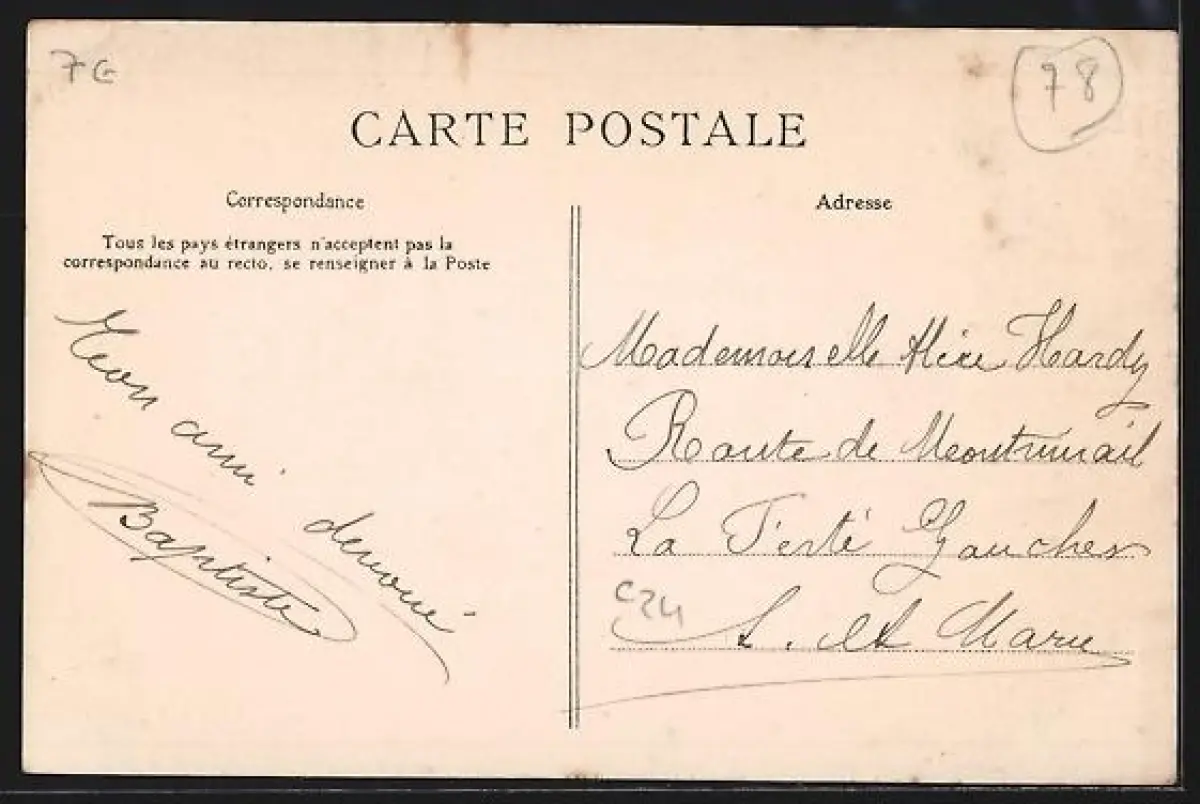 7 G
78
CARTE POSTALE
Correspondance
Tous les pays étrangers n'acceptent pas la
correspondance au recto, se renseigner à la Poste
Mon ami devoué
Baptiste
Adresse
Mademoiselle Hardy
Route de Montmirail
La Ferté Gaucher
C24
S. et Marne